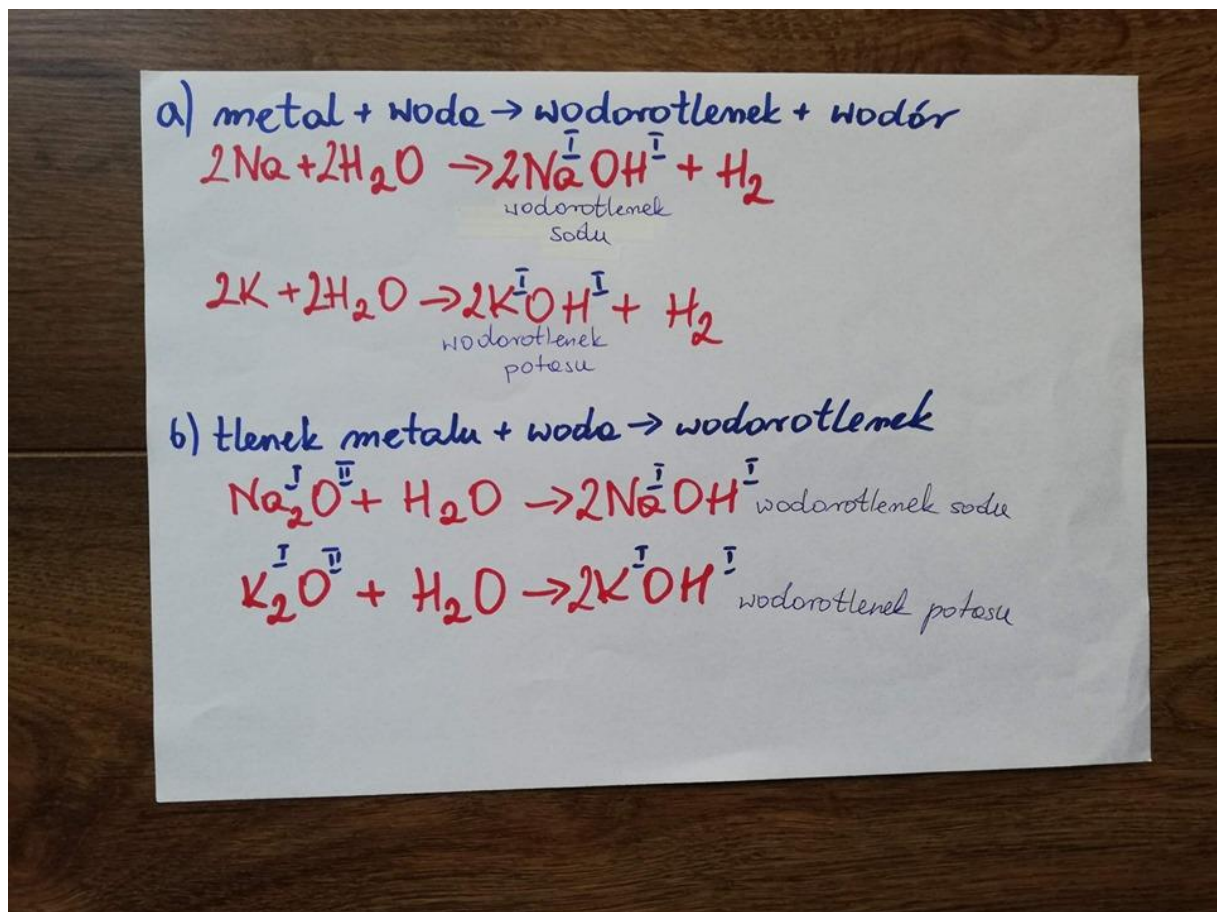 a) metal + woda → wodorotlenek + wodór
2Na + 2H₂O → 2NaᴵOHᴵ + H₂
wodorotlenek
sodu
2K + 2H₂O → 2KᴵOHᴵ + H₂
wodorotlenek
potasu
b) tlenek metalu + woda → wodorotlenek
Na₂ᴵOᴵᴵ + H₂O → 2NaᴵOHᴵ wodorotlenek sodu
K₂ᴵOᴵᴵ + H₂O → 2KᴵOHᴵ wodorotlenek potasu